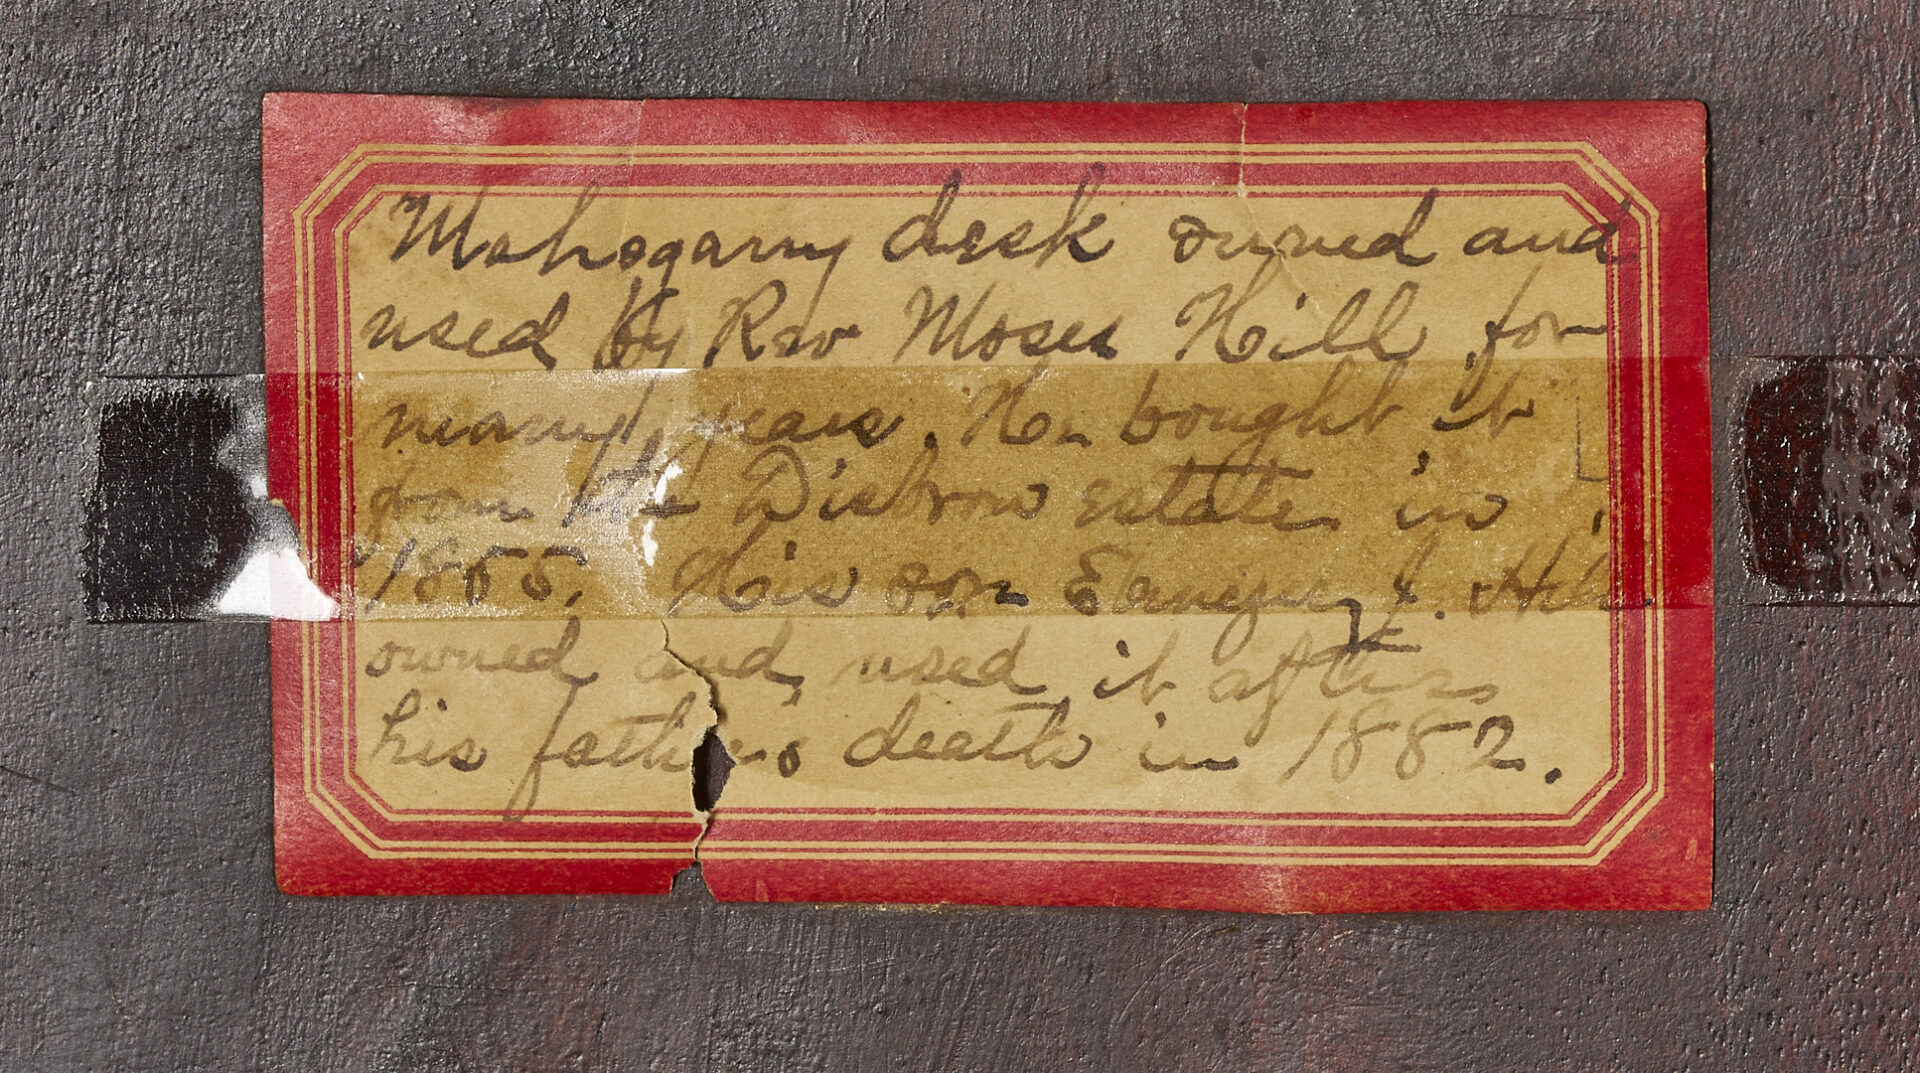 Mahogany desk owned and
used by Rev Moses Hill for
many years. He bought it
from the Disbrow estate in
1855. His son Ebenezer J. Hill
owned and used it after
his father's death in 1882.